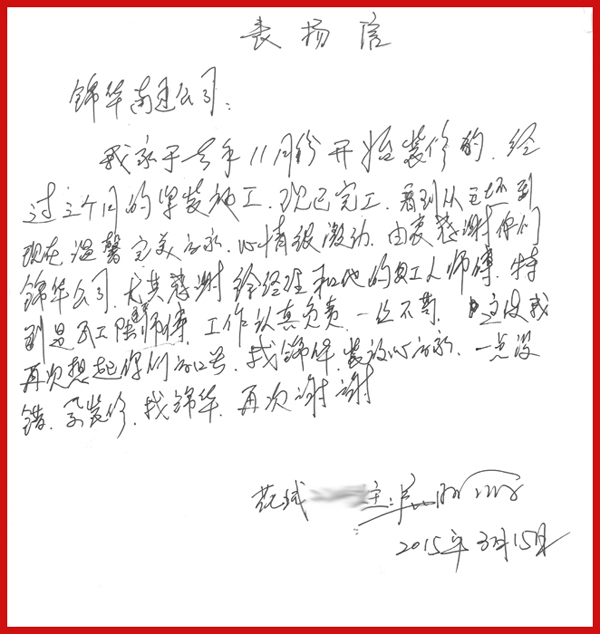 表扬信
锦华南通公司:
我家于去年11月份开始装修的,经
过三个月的紧装施工,现已完工,看到从毛坯到
现在温馨完美的家,心情很激动,由衷感谢你们
锦华公司,尤其感谢徐经理和他的员工师傅,特
别是瓦工陈师傅,工作认真负责,一丝不苟,这使我
再次想起你们的口号,找锦华,装放心的家,一点没
错,要装修,找锦华,再次谢谢
2015年3月15日